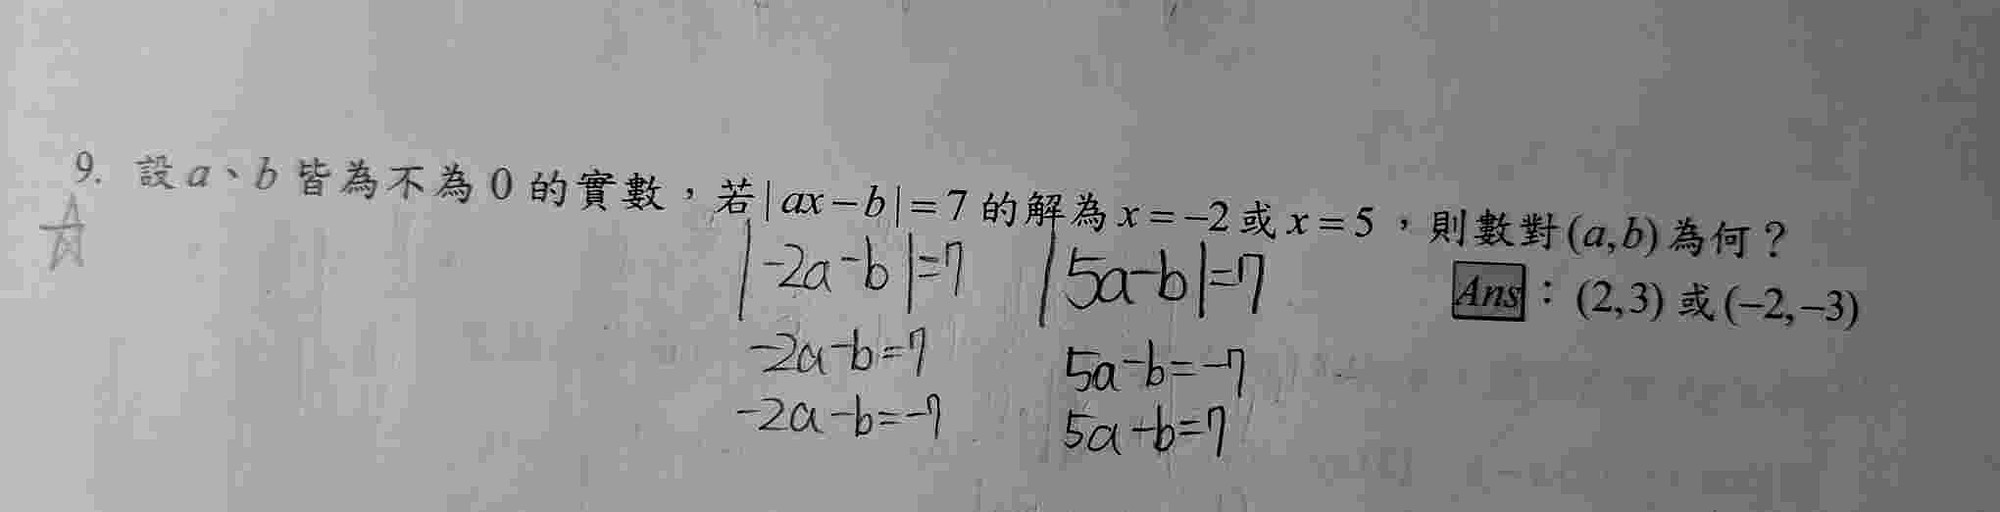 9. 設 a、b 皆為不為 0 的實數，若 |ax−b|=7 的解為 x=−2 或 x=5，則數對 (a,b) 為何？
Ans：(2,3) 或 (−2,−3)
|−2a−b|=7 |5a−b|=7
−2a−b=7 5a−b=−7
−2a−b=−7 5a−b=7